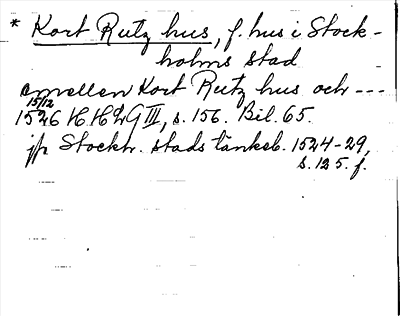 * Kort Rutz hus, f. hus i Stock-
holms stad
emellan Kort Rutz hus och ---
15/12
1526 H H Lg III, s. 156. Bil. 65.
jfr Stockh. stads tänkeb. 1524-29,
s. 125. f.